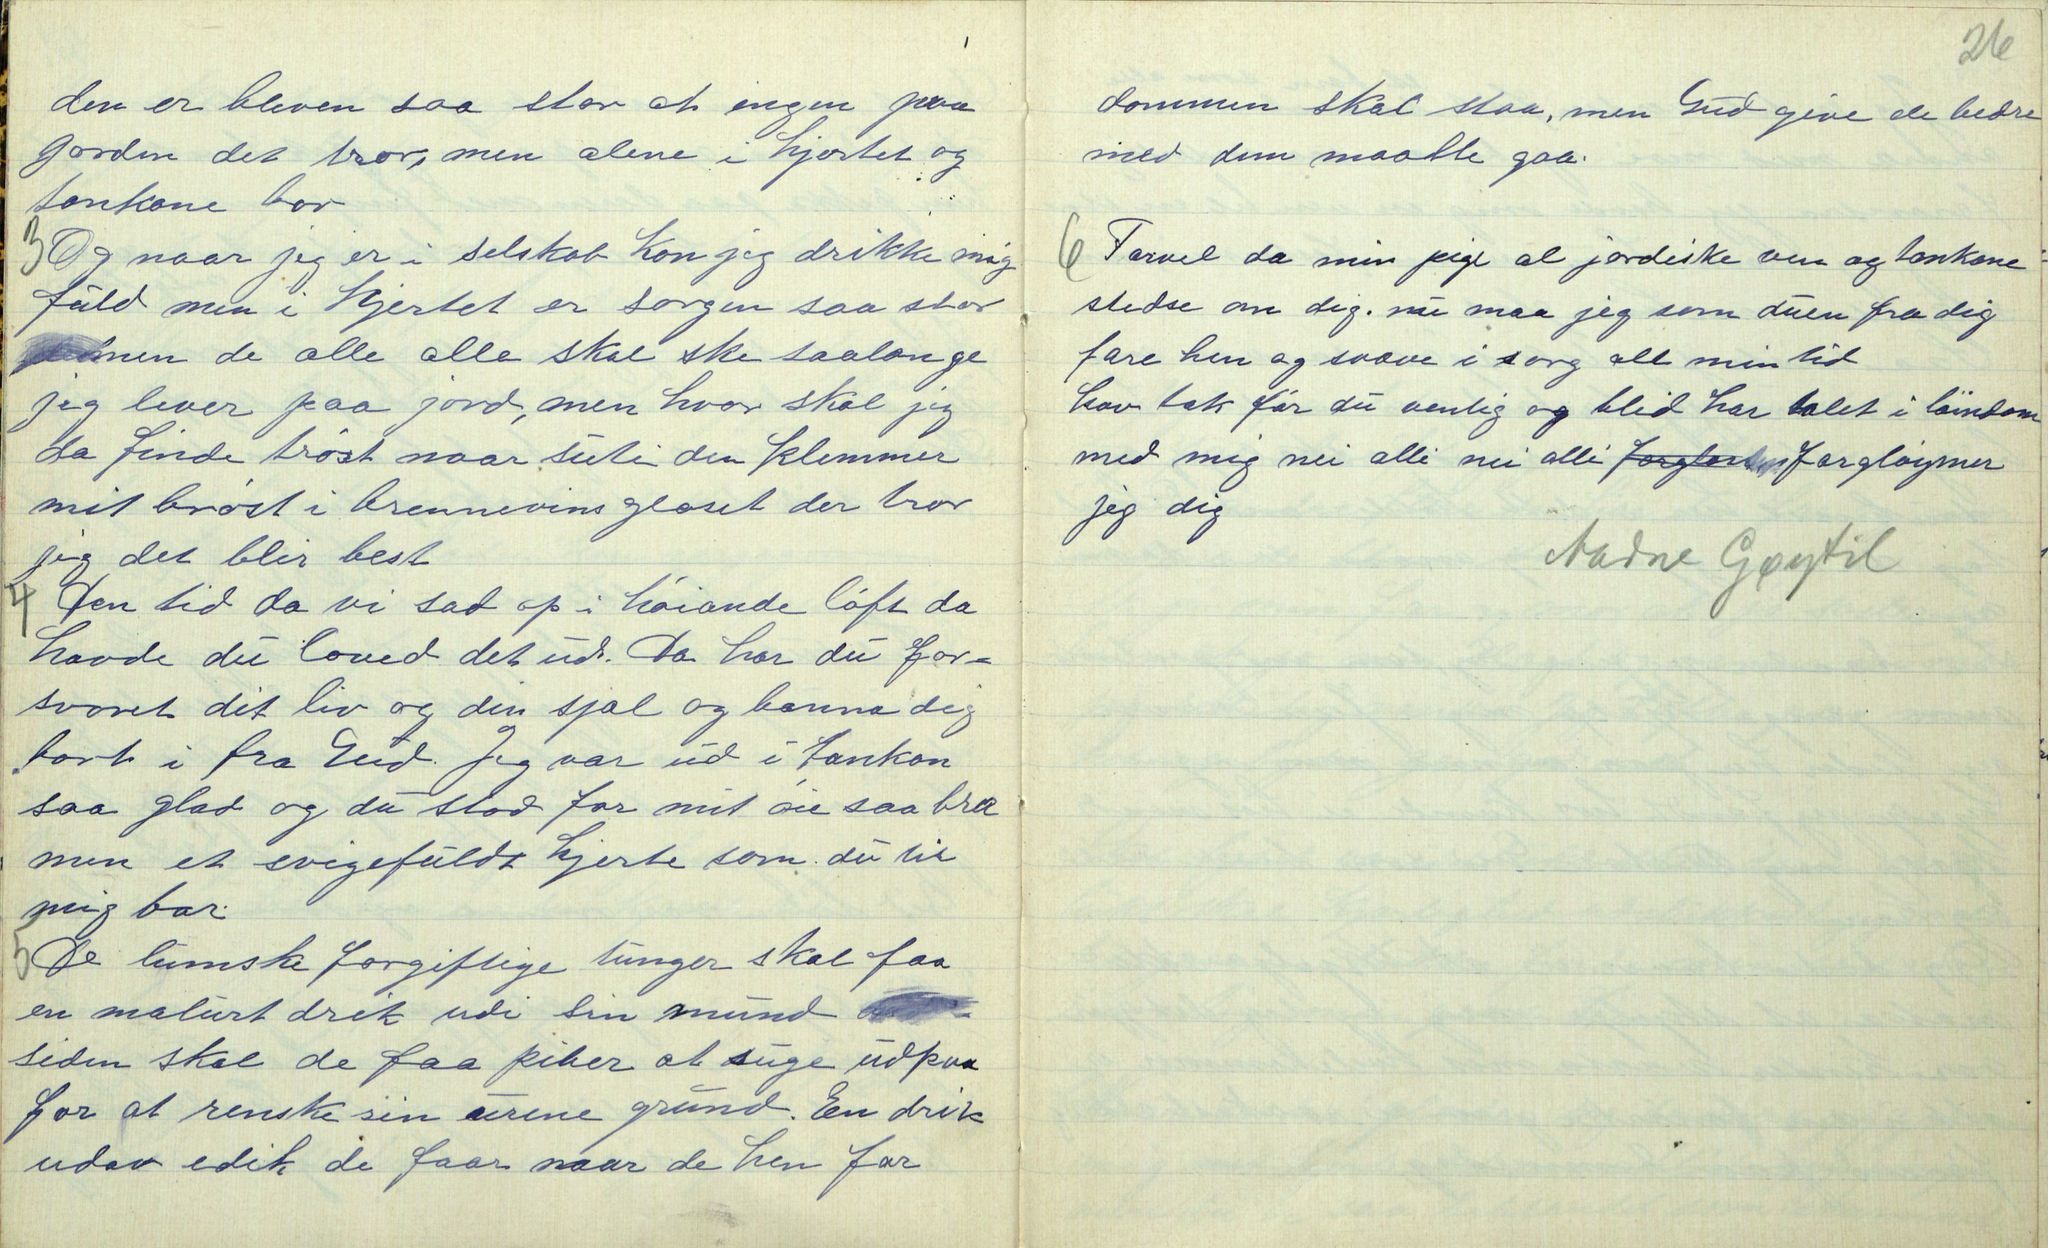 den er bleven saa stor at ingen paa
jorden det tror, men alene i hjertet og
tankane bor
3 Og naar jeg er i selskab kan jeg drikke mig
fuld men i hjertet er sorgen saa stor
men de alle alle skal ske saalange
jeg lever paa jord, men hvor skal jeg
da finde trøst naar suti den klemmer
mit brøst i brennevins glaset der tror
jeg det blir best
4 Den tid da vi sad op i høiande løft da
havde du loved det ud. Da har du for=
svoret dit liv og din sjæl og banna dig
bort i fra Gud. Jeg var ud i tankan
saa glad og du stod for mit øie saa bra
men et svigefuldt hjerte som du til
mig bar.
5 De lumske forgiftige tunger skal faa
en malurt drik udi sin mund
siden skal de faa piber at suge udpaa
for at renske sin urene grund. En drik
udav edik de faar naar de hen for
26
dommen skal staa, men Gud give de bedre
med dem maatte gaa.
6 Farvel da min pige al jordiske ven og tankane
stedse om dig. nu maa jeg som duen fra dig
fare hen og svæve i sorg all min tid
hav tak før du venlig og blid har talet i løindom
med mig nei alli nei alli forgløimer
jeg dig
Aadne Gøytil